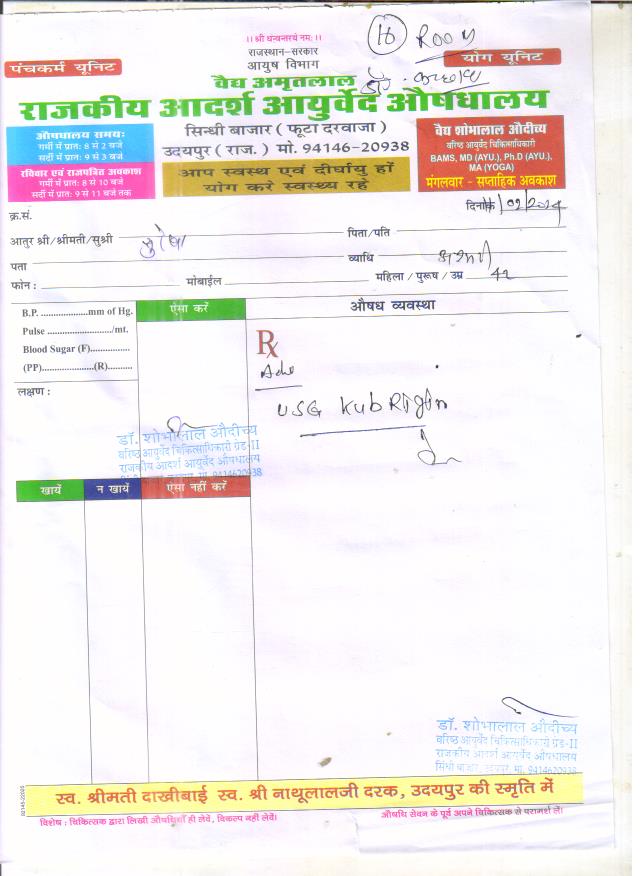 ।। श्री धन्वन्तरये नमः ।।
राजस्थान-सरकार
आयुष विभाग
16 ROOM
पंचकर्म यूनिट
योग यूनिट
वैद्य अमृतलाल
राजकीय आदर्श आयुर्वेद औषधालय
औषधालय समयः
गर्मी में प्रातः 8 से 2 बजे
सर्दी में प्रातः 9 से 3 बजे
रविवार एवं राजपत्रित अवकाश
गर्मी में प्रातः 8 से 10 बजे
सर्दी में प्रातः 9 से 11 बजे तक
सिन्धी बाजार ( फूटा दरवाजा )
उदयपुर ( राज. ) मो. 94146-20938
आप स्वस्थ एवं दीर्घायु हों
योग करे स्वस्थ्य रहे
वैद्य शोभालाल औदीच्य
वरिष्ठ आयुर्वेद चिकित्साधिकारी
BAMS, MD (AYU.), Ph.D (AYU.),
MA (YOGA)
मंगलवार - सप्ताहिक अवकाश
क्र.सं.
दिनांक /02/2024
आतुर श्री/श्रीमती/सुश्री
पिता/पति
पता
व्याधि
फोन :
मोबाईल
महिला / पुरूष / उम्र 42
B.P. ...................mm of Hg.
Pulse ........................../mt.
Blood Sugar (F)................
(PP).....................(R)..........
लक्षण :
ऐसा करें
औषध व्यवस्था
Rx
Adv
USG KUB Rigion
डॉ. शोभालाल औदीच्य
वरिष्ठ आयुर्वेद चिकित्साधिकारी ग्रेड-II
राजकीय आदर्श आयुर्वेद औषधालय
9414620938
खायें
न खायें
ऐसा नहीं करें
डॉ. शोभालाल औदीच्य
वरिष्ठ आयुर्वेद चिकित्साधिकारी ग्रेड-II
राजकीय आदर्श आयुर्वेद औषधालय
सिंधी बाजार, उदयपुर, मो. 9414620938
स्व. श्रीमती दाखीबाई स्व. श्री नाथूलालजी दरक, उदयपुर की स्मृति में
विशेष : चिकित्सक द्वारा लिखी औषधियाँ ही लेवें, विकल्प नहीं लेवें।
औषधि सेवन के पूर्व अपने चिकित्सक से परामर्श लें।